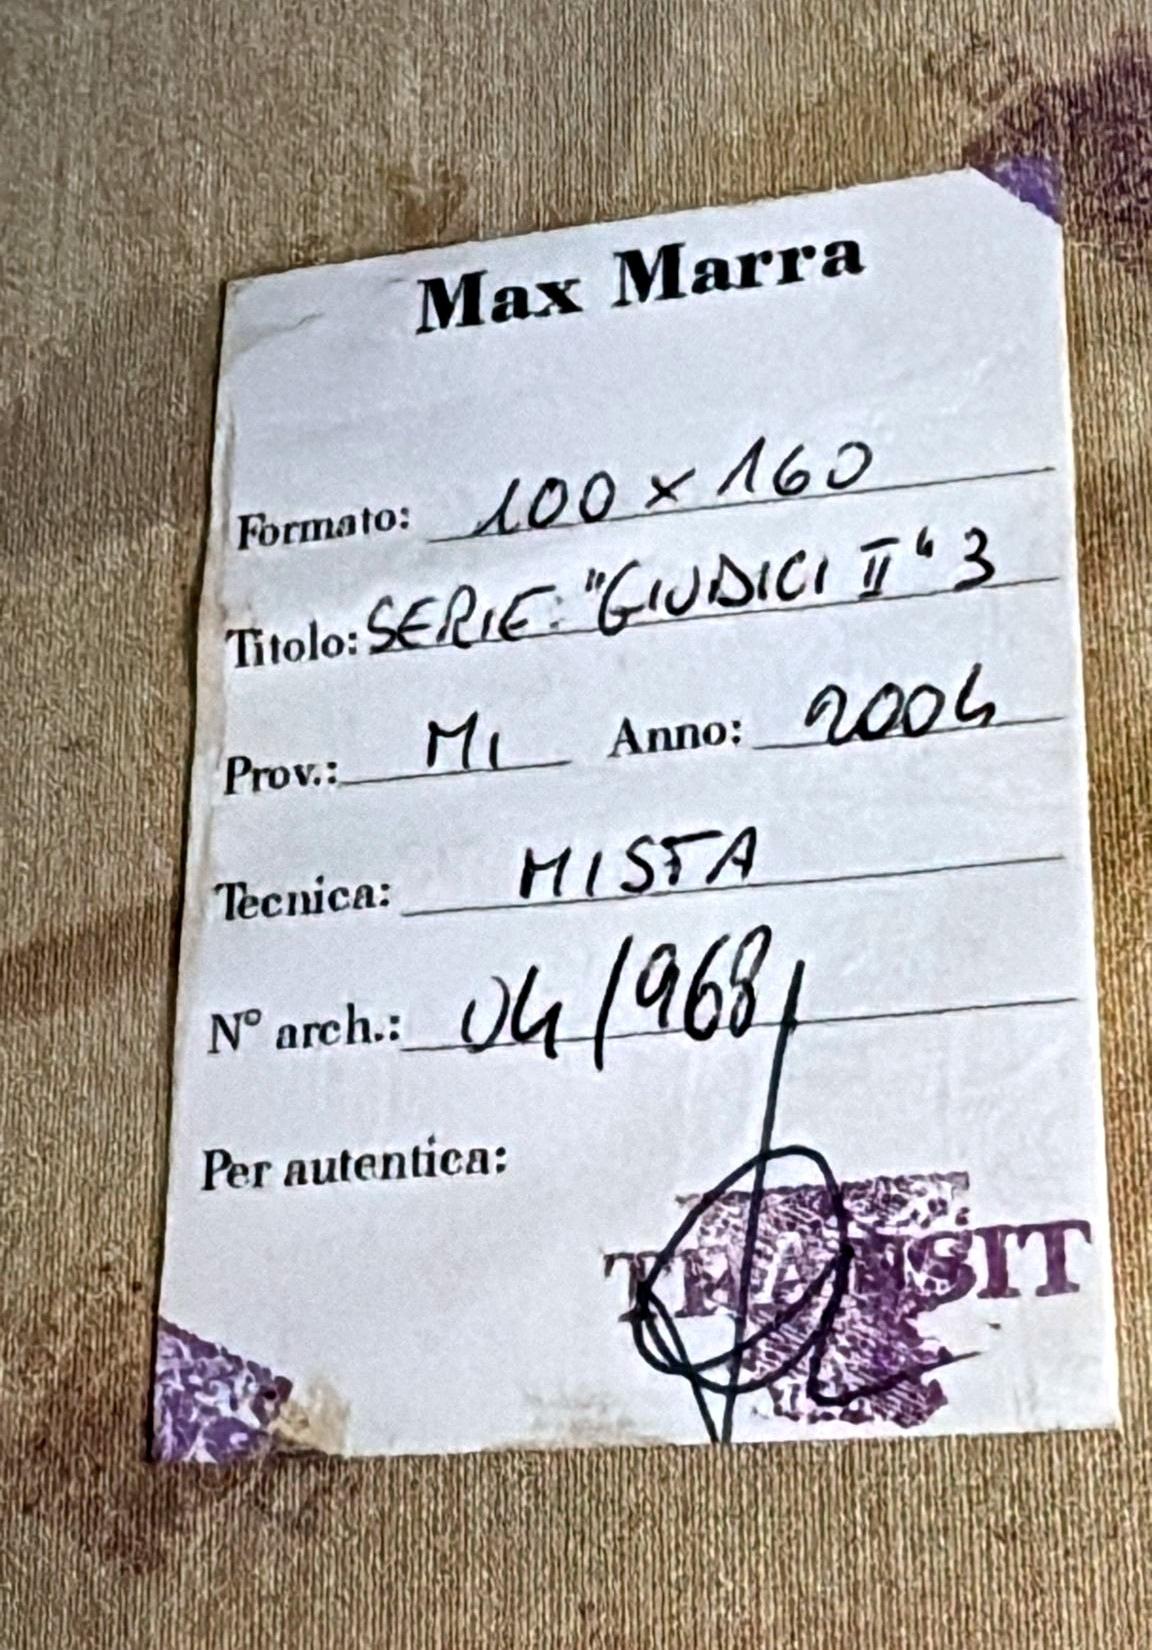 Max Marra
Formato: 100 x 160
Titolo: SERIE: "GIUDICI II" 3
Prov.: MI Anno: 2004
Tecnica: MISTA
N° arch.: 04/968
Per autentica:
TRANSIT